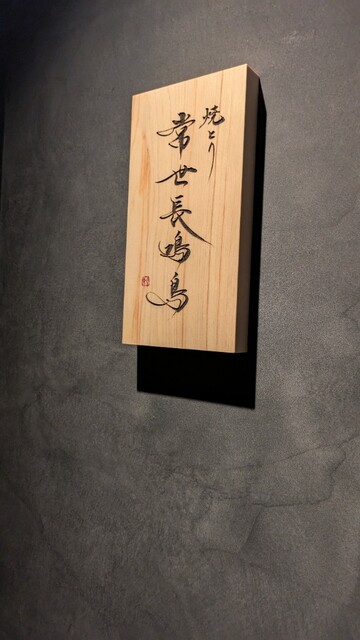 焼とり
常世長鳴鳥